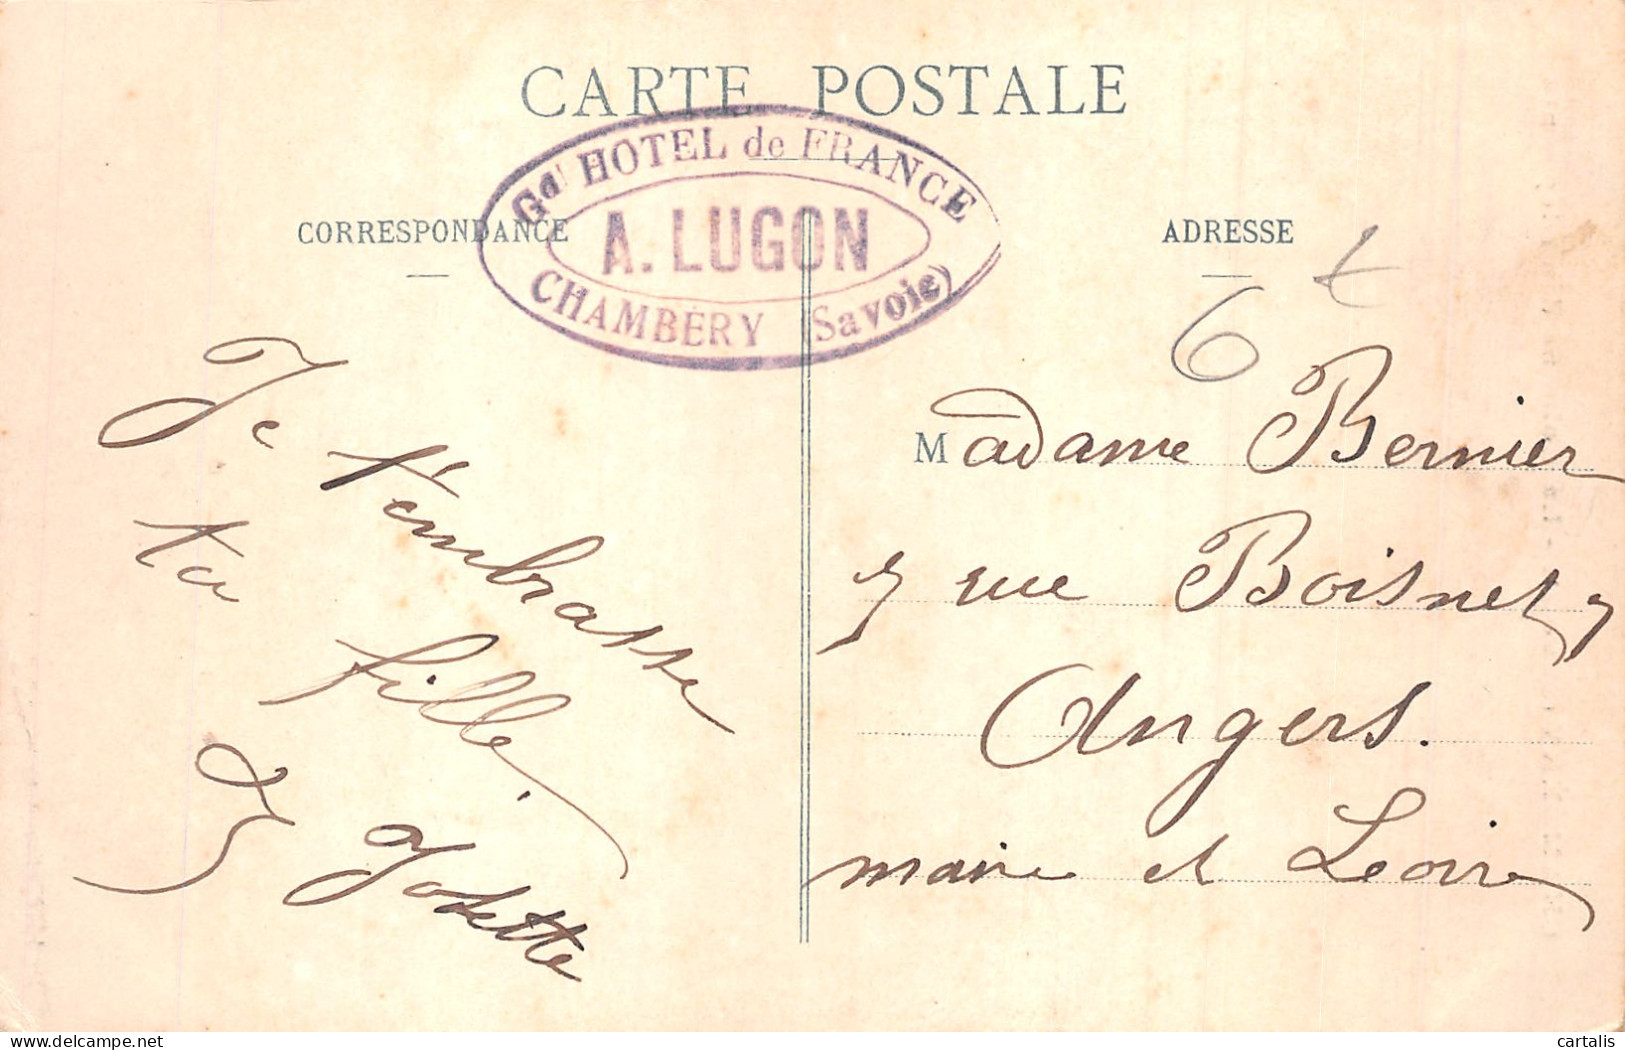 CARTE POSTALE
Gd HOTEL de FRANCE
A. LUGON
CHAMBÉRY (Savoie)
CORRESPONDANCE
ADRESSE
6
Je t'embrasse
ta fille.
Josette
Madame Bernier
5 rue Boisnet 5
Angers.
maine et Loire
delcampe.net
cartalis